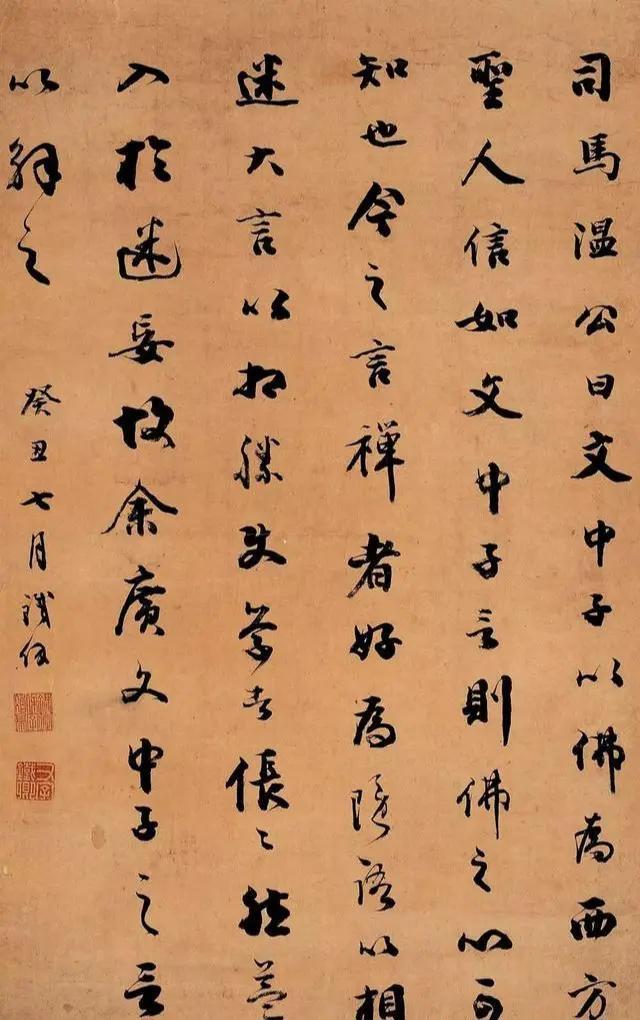 司馬温公曰文中子以佛為西方
聖人信如文中子言則佛之心可
知也今之言禪者好為隱語以相
迷大言以相勝使學者倀〻然益
入於迷妄故余廣文中子之言
以解之
癸丑七月鐵保